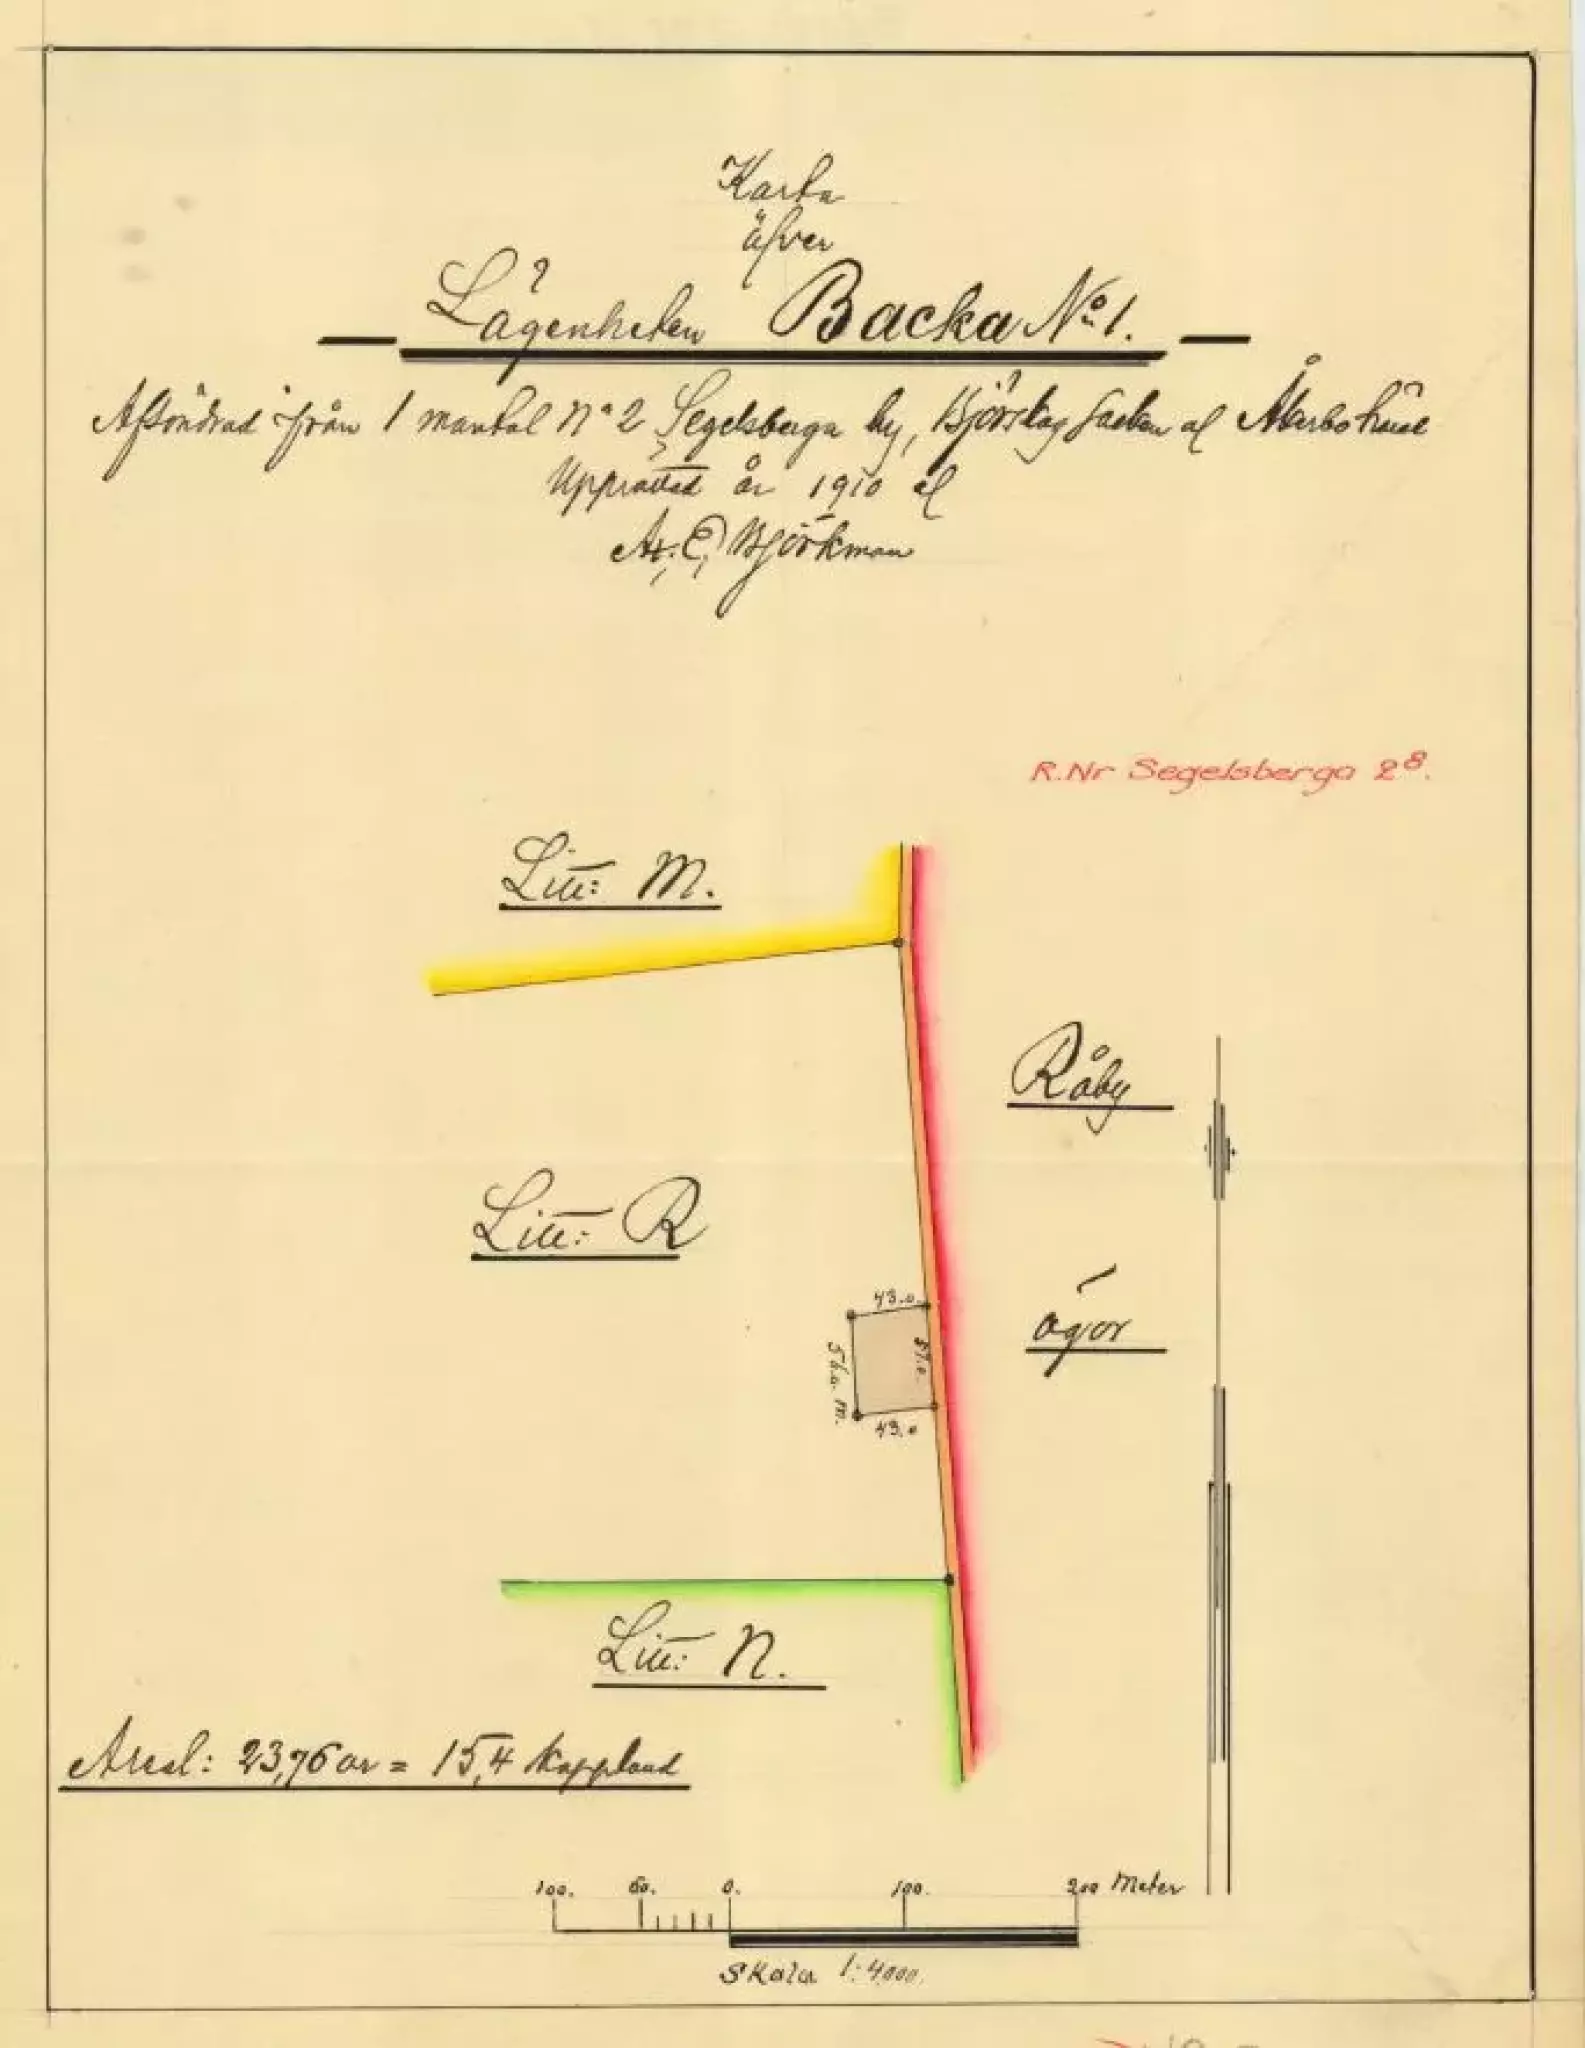 Karta
öfver
Lägenheten Backa No 1.
Afsöndrad från 1 mantal No 2 Segelsberga by, Björskog Socken af Åkerbo härad
Upprättad år 1910 af
A. E. Björkman
R.Nr Segelsberga 2⁸.
Litt: M.
Råby
Litt: R
43.0
57.0
ägor
56.0 m.
43.0
Litt: N.
Areal: 23,76 ar = 15,4 kappland
100. 50. 0. 100. 200 Meter
Skala 1:4000.